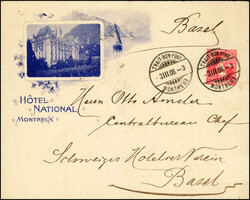 Basel
TERRIT-BON-PORT
3.III.06.-3
MONTREUX
HÔTEL
NATIONAL
MONTREUX
Herrn Otto Amsler
Centralbureau Chef
Schweizer Hotelier Verein
Basel